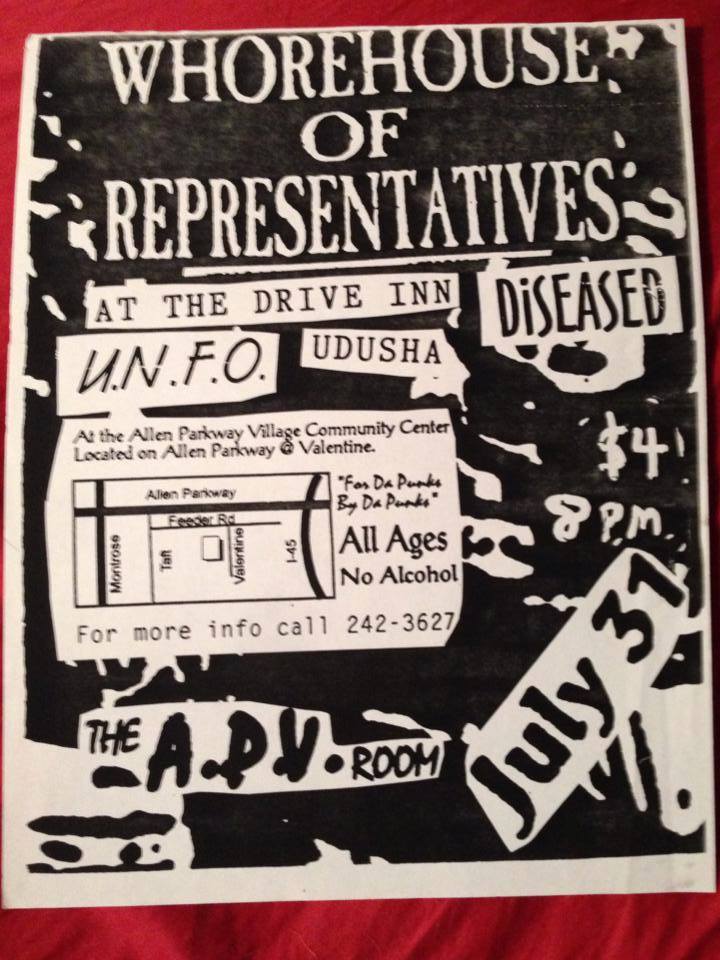 WHOREHOUSE
OF
REPRESENTATIVES
AT THE DRIVE INN
DiSEASED
U.N.F.O.
UDUSHA
At the Allen Parkway Village Community Center
Located on Allen Parkway @ Valentine.
Allen Parkway
Feeder Rd
Montrose
Taft
Valentine
I-45
"For Da Punks
By Da Punks"
All Ages
No Alcohol
For more info call 242-3627
$4
8 P.M.
July 31
THE A.P.V. ROOM